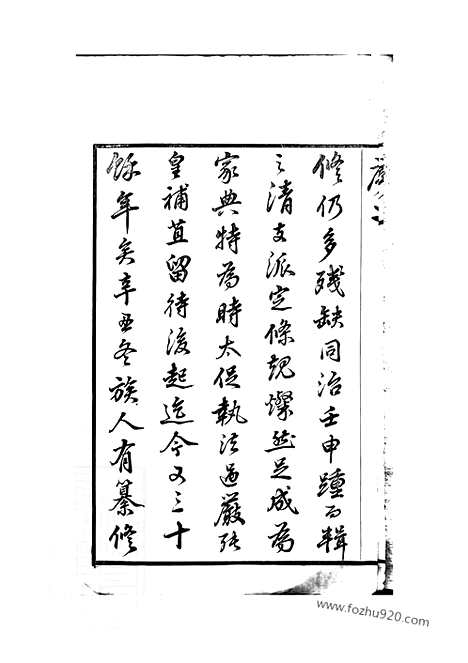 修仍多殘缺同治壬申踵而輯
之清支派定條規燦然足成為
家典特為時太促執法過嚴張
皇補苴留待後起迄今又三十
餘年矣辛丑冬族人有纂修
www.fozhu920.com